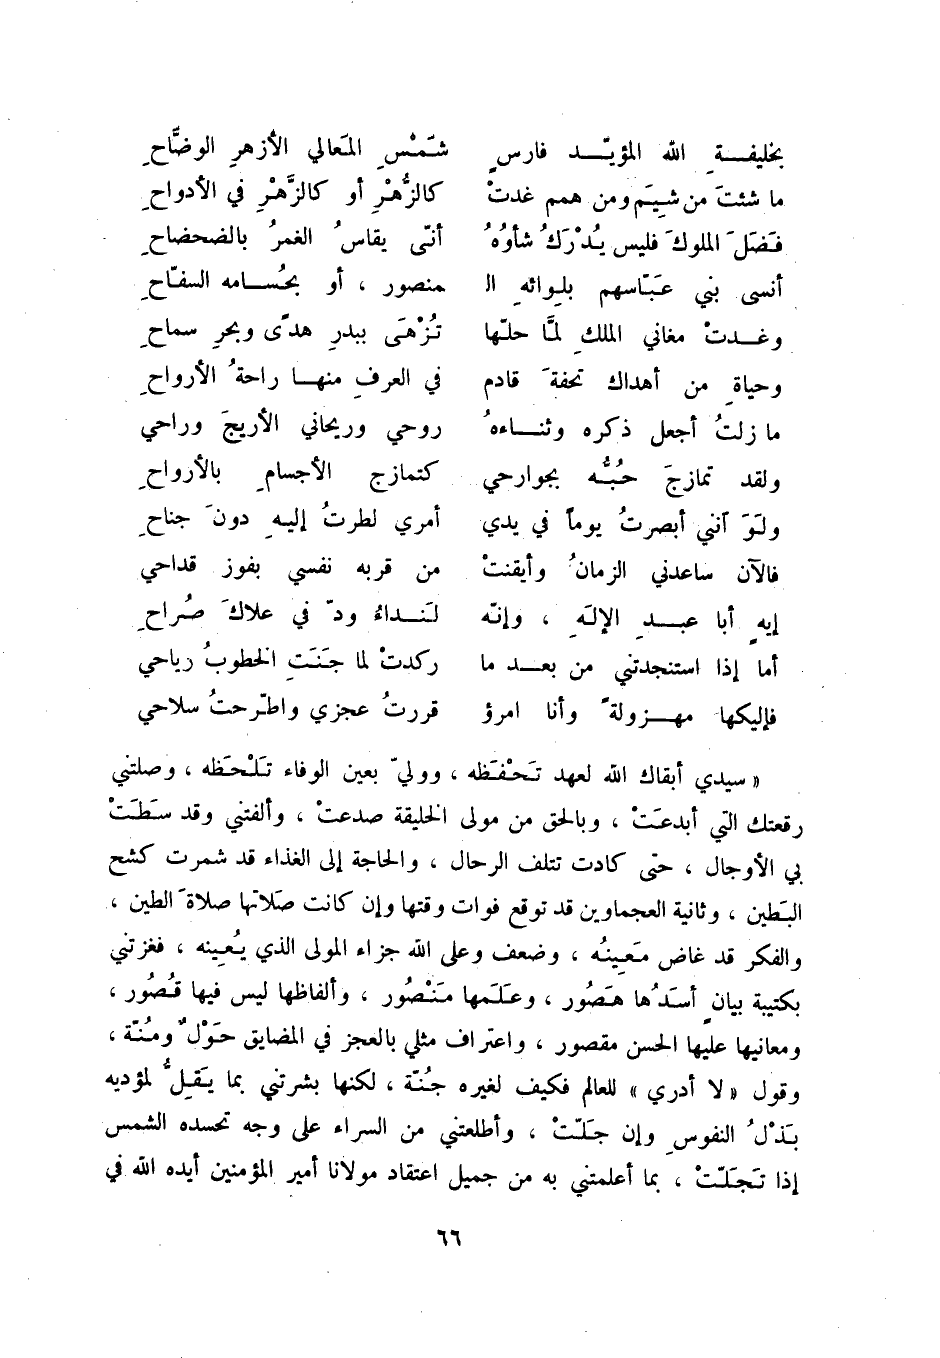 بخليفةِ الله المؤيّد فارسٍ شمْسِ المَعالي الأزهرِ الوضّاحِ
ما شئتَ من شيَمٍ ومن هممٍ غدتْ كالزُّهْرِ أو كالزَّهْرِ في الأدواحِ
فَضَلَ الملوكَ فليس يُدْرَكُ شأوُهُ أنّى يقاسُ الغمرُ بالضحضاحِ
أنسى بني عبّاسهم بلوائهِ الـ منصور ، أو بحُسامه السفّاحِ
وغدتْ مغاني الملكِ لمَّا حلّها تُزْهَى ببدرِ هدًى وبحرِ سماحِ
وحياةِ من أهداك تحفةَ قادم في العرفِ منها راحةُ الأرواحِ
ما زلتُ أجعل ذكره وثناءهُ روحي وريحاني الأريجَ وراحي
ولقد تمازجَ حُبُّه بجوارحي كتمازج الأجسامِ بالأرواحِ
ولَوَ آنني أبصرتُ يوماً في يدي أمري لطرتُ إليهِ دونَ جناحِ
فالآن ساعدني الزمانُ وأيقنتْ من قربه نفسي بفوز قداحي
إيهٍ أبا عبدِ الإلهِ ، وإنّه لَنداءُ ودّ في علاكَ صُراحِ
أما إذا استنجدتني من بعد ما ركدتْ لما جَنَتِ الخطوبُ رياحي
فإليكها مهزولةً وأنا امرؤ قررتُ عجزي واطّرحتُ سلاحي
« سيدي أبقاك الله لعهد تَحْفَظه ، ووليّ بعين الوفاء تَلْحَظه ، وصلتني
رقعتك التي أبدعَتْ ، وبالحق من مولى الخليقة صدعتْ ، وألفتني وقد سَطَتْ
بي الأوجال ، حتى كادت تتلف الرحال ، والحاجة إلى الغذاء قد شمرت كشح
البَطين ، وثانية العجماوين قد توقع فوات وقتها وإن كانت صَلاتها صلاةَ الطين ،
والفكر قد غاض مَعِينُه ، وضعف وعلى الله جزاء المولى الذي يُعِينه ، فغزتني
بكتيبة بيانٍ أسَدُها هَصُور ، وعَلَمها مَنْصُور ، وألفاظها ليس فيها قُصُور ،
ومعانيها عليها الحسن مقصور ، واعتراف مثلي بالعجز في المضايق حَوْلٌ ومُنّة ،
وقول « لا أدري » للعالم فكيف لغيره جُنّة ، لكنها بشرتني بما يَقِلُّ لمؤديه
بَذْلُ النفوسِ وإن جَلّتْ ، وأطلعتني من السراء على وجه تحسده الشمس
إذا تَجَلّتْ ، بما أعلمتني به من جميل اعتقاد مولانا أمير المؤمنين أيده الله في
٦٦